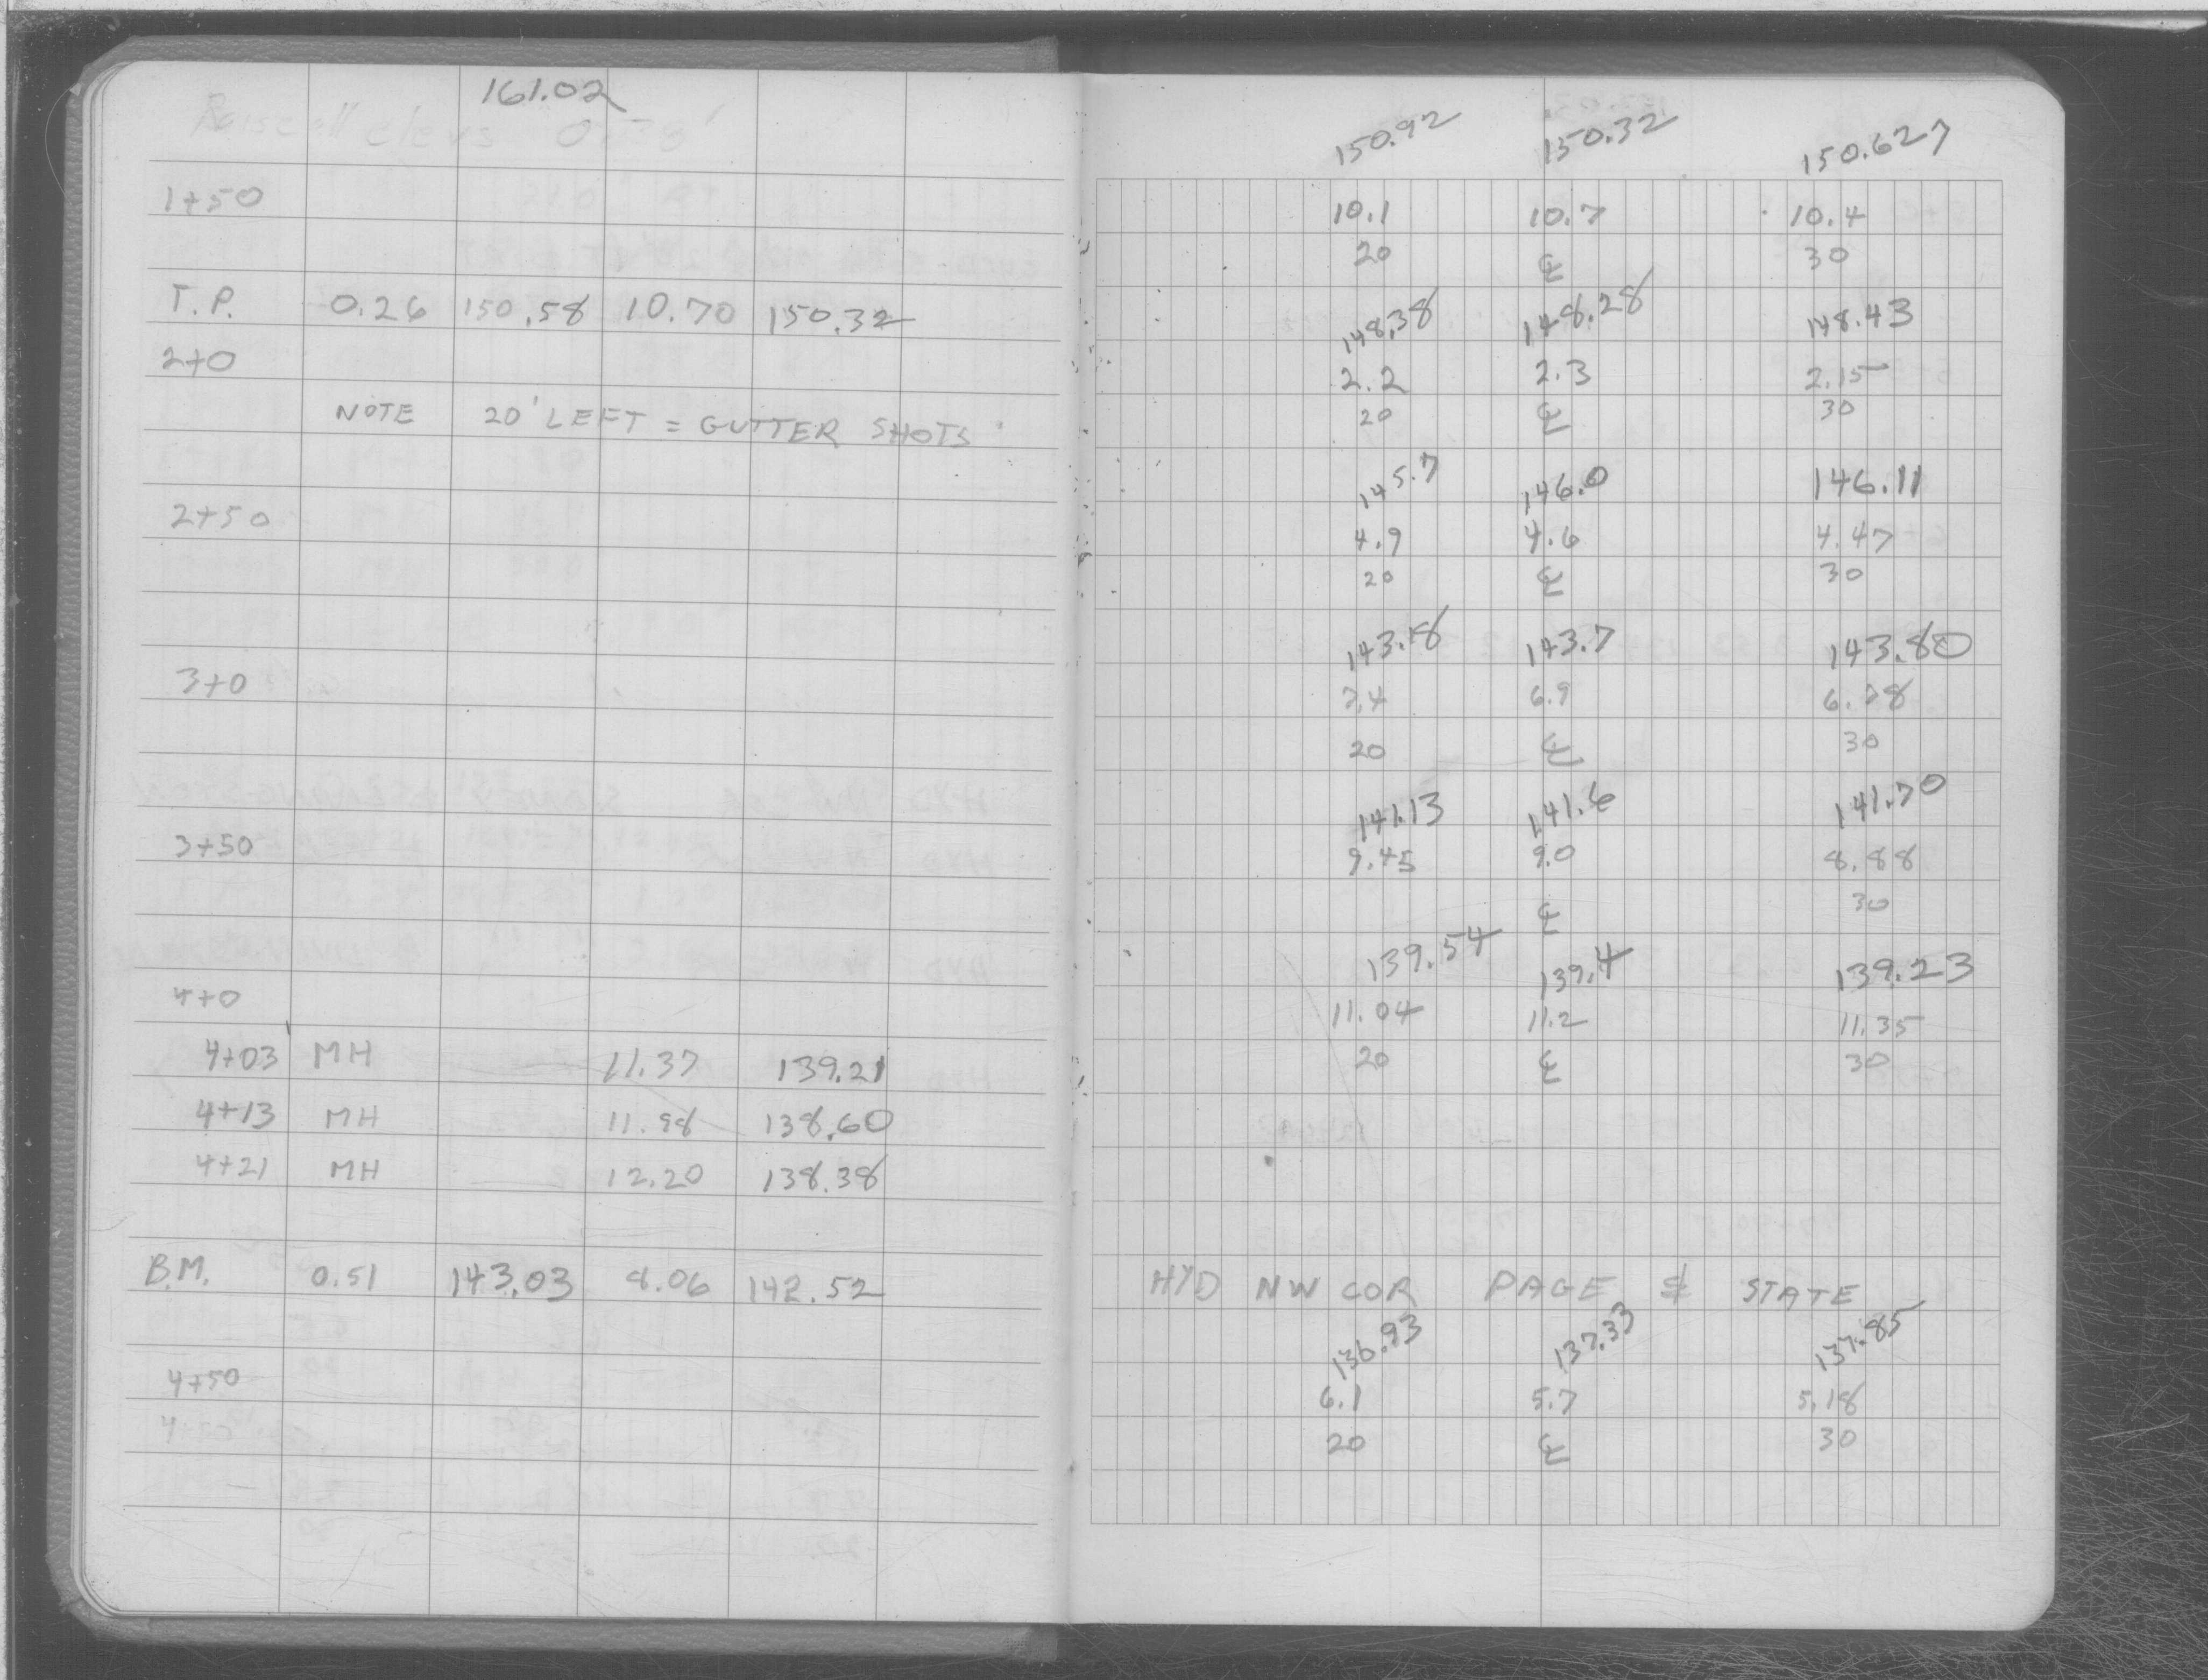 161.02
Raise all elevs 0.38'
1+50
T.P. 0.26 150.58 10.70 150.32
2+0
NOTE 20' LEFT = GUTTER SHOTS
2+50
3+0
3+50
4+0
4+03 MH 11.37 139.21
4+13 MH 11.98 138.60
4+21 MH 12.20 138.38
B.M. 0.51 143.03 8.06 142.52
4+50
150.92 150.32 150.627
10.1 10.7 10.4
20 ℄ 30
148.38 148.28 148.43
2.2 2.3 2.15
20 ℄ 30
145.7 146.0 146.11
4.9 4.6 4.47
20 ℄ 30
143.18 143.7 143.80
7.4 6.9 6.78
20 ℄ 30
141.13 141.6 141.70
9.45 9.0 8.88
℄ 30
139.54 139.4 139.23
11.04 11.2 11.35
20 ℄ 30
HYD NW COR PAGE & STATE
136.93 137.33 137.85
6.1 5.7 5.18
20 ℄ 30